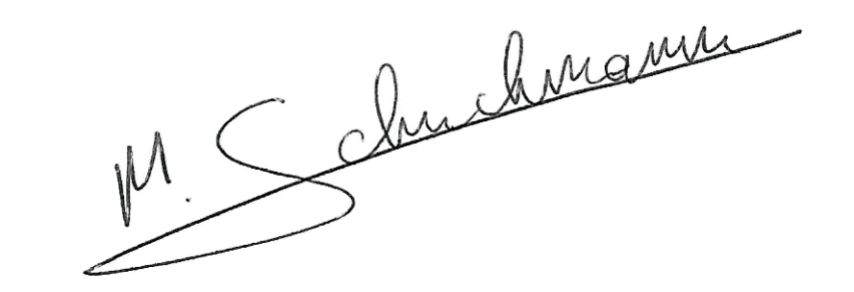 M. Schuchmann